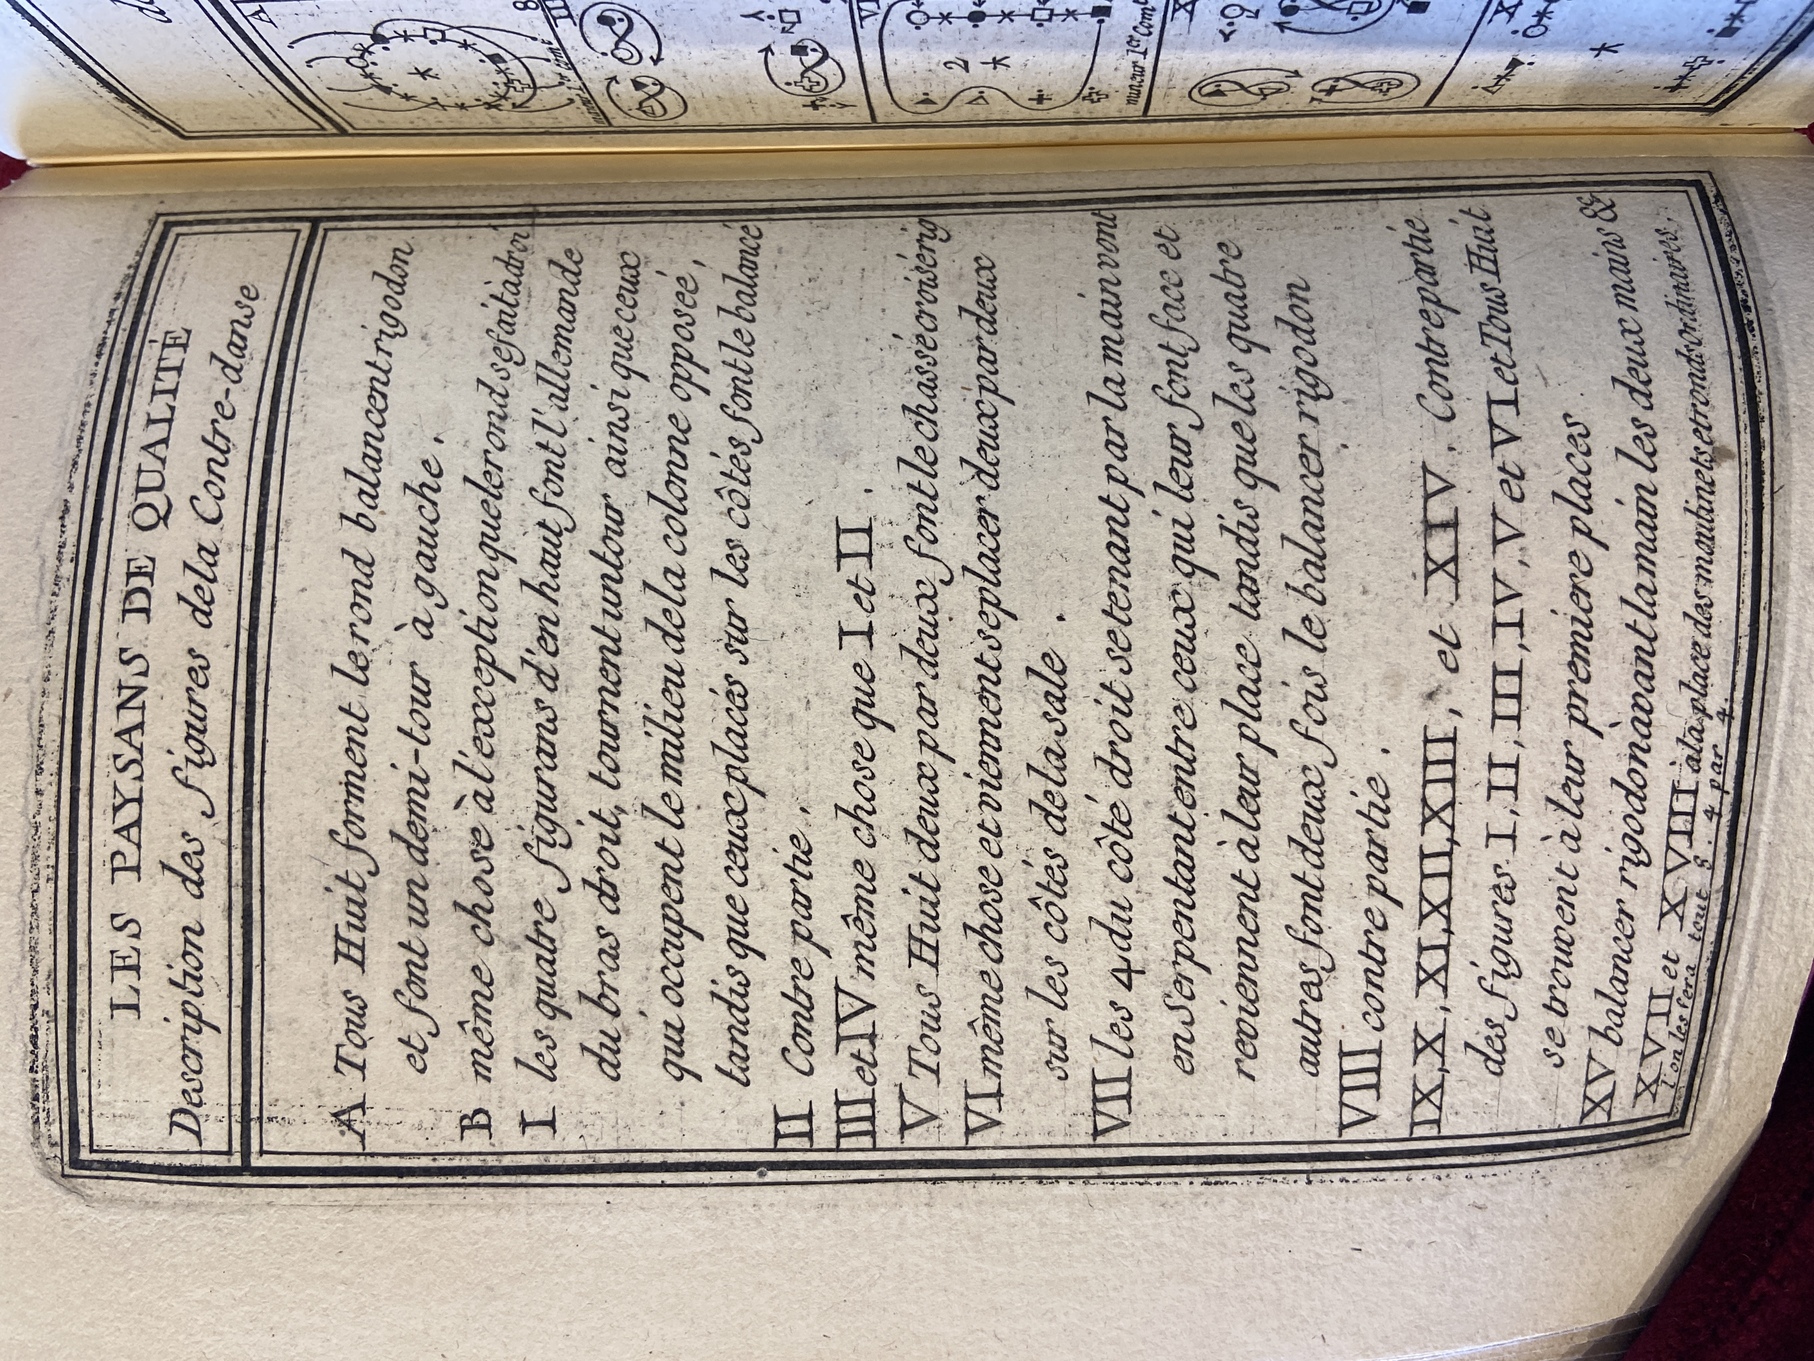 LES PAYSANS DE QUALITÉ
Description des figures dela Contre-danse
A Tous Huit forment le rond balancent rigodon
et font un demi-tour à gauche.
B même chose à l'exception que le rond se fait à droi
I les quatre figurans d'en haut font l'allemande
du bras droit, tournent un tour ainsi que ceux
qui occupent le milieu de la colonne opposeé,
tandis que ceux placés sur les côtés font le balancé
II Contre partie.
III et IV même chose que I et II.
V Tous Huit deux par deux font le chassé croisé rig
VI même chose et viennent se placer deux par deux
sur les côtés de la sale.
VII les 4 du côté droit se tenant par la main vont
en serpentant entre ceux qui leur font face et
reviennent à leur place tandis que les quatre
autres font deux fois le balancer rigodon
VIII contre partie.
IX, X, XI, XII, XIII, et XIV. Contre partie
des figures I, II, III, IV, V et VI et Tous Huit
se trouvent à leur premiere places
XV balancer rigodon avant la main les deux mains &
XVII et XVIII à la place des moulinets et ronds ordinaires.
l'on les fera tout 8. 4 par 4.
2